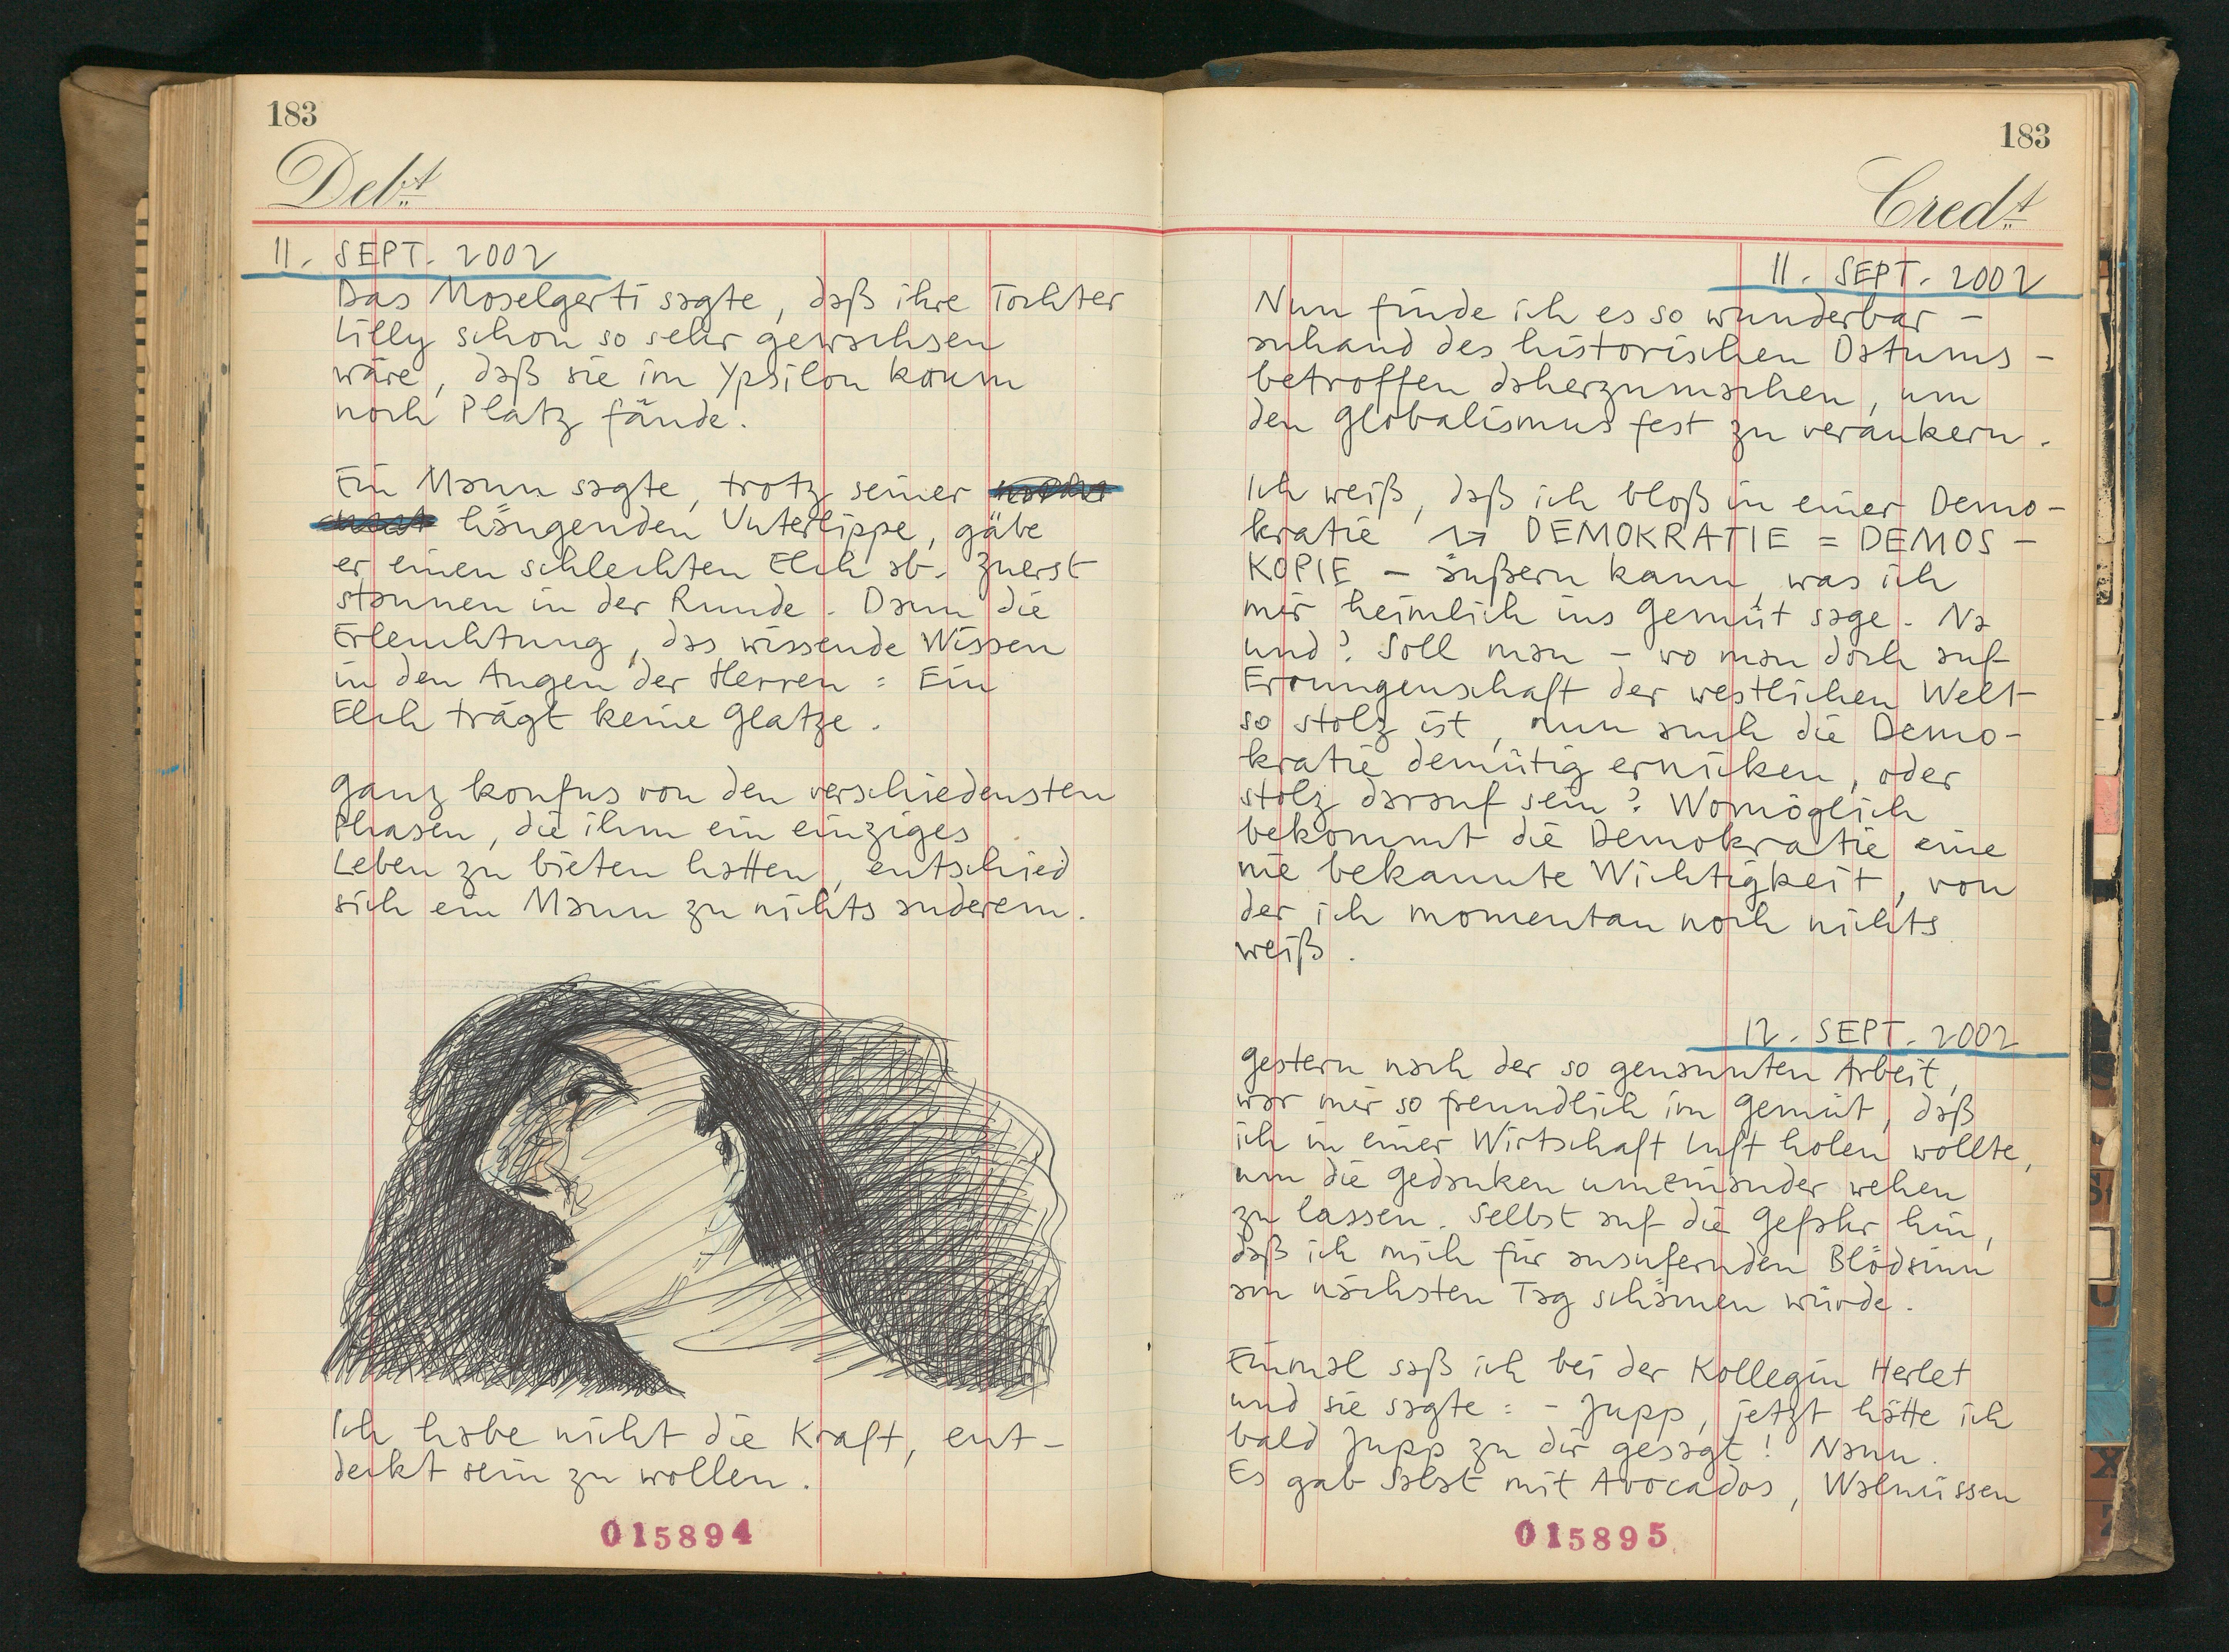 183
Debt
11. SEPT. 2002
Das Moselgerti sagte, daß ihre Tochter
Lilly schon so sehr gewachsen
wäre, daß sie im Ypsilon kaum
noch Platz fände.
Ein Mann sagte, trotz seiner
hängenden Unterlippe, gäbe
er einen schlechten Elch ab. Zuerst
staunen in der Runde. Dann die
Erleuchtung, das wissende Wissen
in den Augen der Herren: Ein
Elch trägt keine Glatze.
Ganz konfus von den verschiedensten
Phasen, die ihm ein einziges
Leben zu bieten hatten, entschied
sich ein Mann zu nichts anderem.
Ich habe nicht die Kraft, ent-
deckt sein zu wollen.
015894
183
Credt
11. SEPT. 2002
Nun finde ich es so wunderbar -
anhand des historischen Datums -
betroffen daherzumachen, um
den Globalismus fest zu verankern.
Ich weiß, daß ich bloß in einer Demo-
kratie → DEMOKRATIE = DEMOS-
KOPIE - äußern kann, was ich
mir heimlich ins Gemüt sage. Na
und? Soll man - wo man doch auf
Errungenschaft der westlichen Welt
so stolz ist, nun auch die Demo-
kratie demütig ernicken, oder
stolz darauf sein? Womöglich
bekommt die Demokratie eine
nie bekannte Wichtigkeit, von
der ich momentan noch nichts
weiß.
12. SEPT. 2002
Gestern nach der so genannten Arbeit,
war mir so freundlich im Gemüt, daß
ich in einer Wirtschaft Luft holen wollte,
um die Gedanken umeinander wehen
zu lassen. Selbst auf die Gefahr hin,
daß ich mich für ausufernden Blödsinn
am nächsten Tag schämen würde.
Einmal saß ich bei der Kollegin Herlet
und sie sagte: - Jupp, jetzt hätte ich
bald Jupp zu dir gesagt! Nanu.
Es gab Salat mit Avocados, Walnüssen
015895